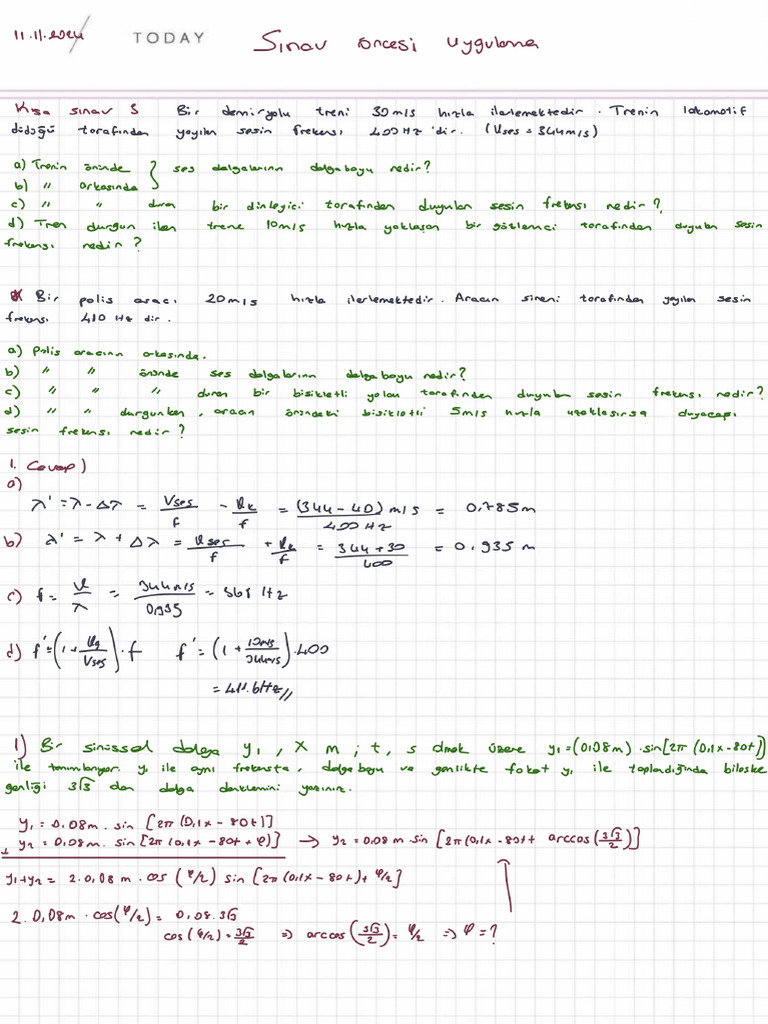 11.11.2024 TODAY Sınav öncesi Uygulama
Kısa sınav 3 Bir demiryolu treni 30 m/s hızla ilerlemektedir. Trenin lokomotif
düdüğü tarafından yayılan sesin frekansı 400 Hz 'dir. (Vses = 344 m/s)
a) Trenin önünde } ses dalgalarının dalgaboyu nedir?
b) " arkasında
c) " " duran bir dinleyici tarafından duyulan sesin frekansı nedir?
d) Tren durgun iken trene 10 m/s hızla yaklaşan bir gözlemci tarafından duyulan sesin
frekansı nedir?
* Bir polis aracı 20 m/s hızla ilerlemektedir. Aracın sireni tarafından yayılan sesin
frekansı 410 Hz dir.
a) Polis aracının arkasında.
b) " " önünde ses dalgalarının dalgaboyu nedir?
c) " " " duran bir bisikletli yolcu tarafından duyulan sesin frekansı nedir?
d) " " durgunken, aracın önündeki bisikletli 5 m/s hızla uzaklaşırsa duyacağı
sesin frekansı nedir?
1. Cevap)
a)
λ' = λ - Δλ = Vses/f - Vk/f = (344 - 40) m/s / 400 Hz = 0.785 m
b) λ' = λ + Δλ = Vses/f + Vk/f = 344 + 30 / 400 = 0.935 m
c) f = V/λ = 344 m/s / 0.935 = 368 Hz
d) f' = (1 + Vg/Vses) . f f' = (1 + 10 m/s / 344 m/s) . 400
= 411.6 Hz //
1) Bir sinüssel dalga y₁, x m; t, s olmak üzere y₁ = (0.08 m) . sin[2π (0.1x - 80t)]
ile tanımlanıyor. y₁ ile aynı frekansta, dalgaboyu ve genlikte fakat y₁ ile toplandığında bileşke
genliği 3√3 olan dalga denklemini yazınız.
y₁ = 0.08 m . sin [2π (0.1x - 80t)]
+ y₂ = 0.08 m . sin [2π (0.1x - 80t + φ)] → y₂ = 0.08 m sin [2π (0.1x - 80t + arccos(3√3/2)]
y₁ + y₂ = 2. 0.08 m . cos (φ/2) sin [2π (0.1x - 80t) + φ/2]
2. 0.08 m . cos(φ/2) = 0.08 . 3√3
cos (φ/2) = 3√3/2 ⇒ arccos(3√3/2) = φ/2 ⇒ φ = ?